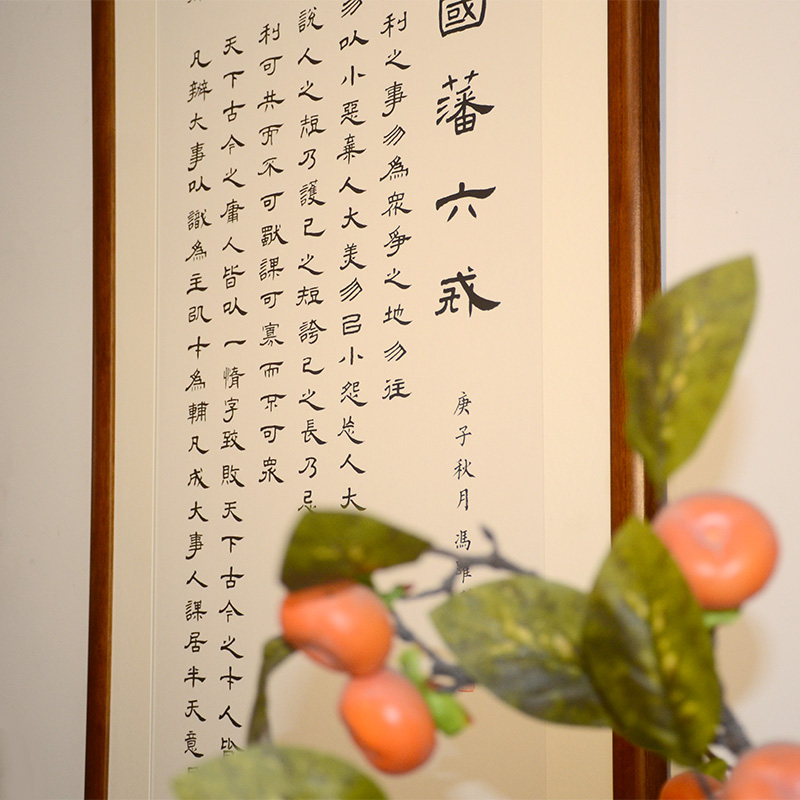 國藩六戒
庚子秋月 馮
利之事勿為眾爭之地勿往
勿以小惡棄人大美勿㠯小怨忘人大
說人之短乃護己之短誇己之長乃忌
利可共而不可獨謀可寡而不可眾
天下古今之庸人皆以一惰字致敗天下古今之才人皆
凡辦大事以識為主以才為輔凡成大事人謀居半天意